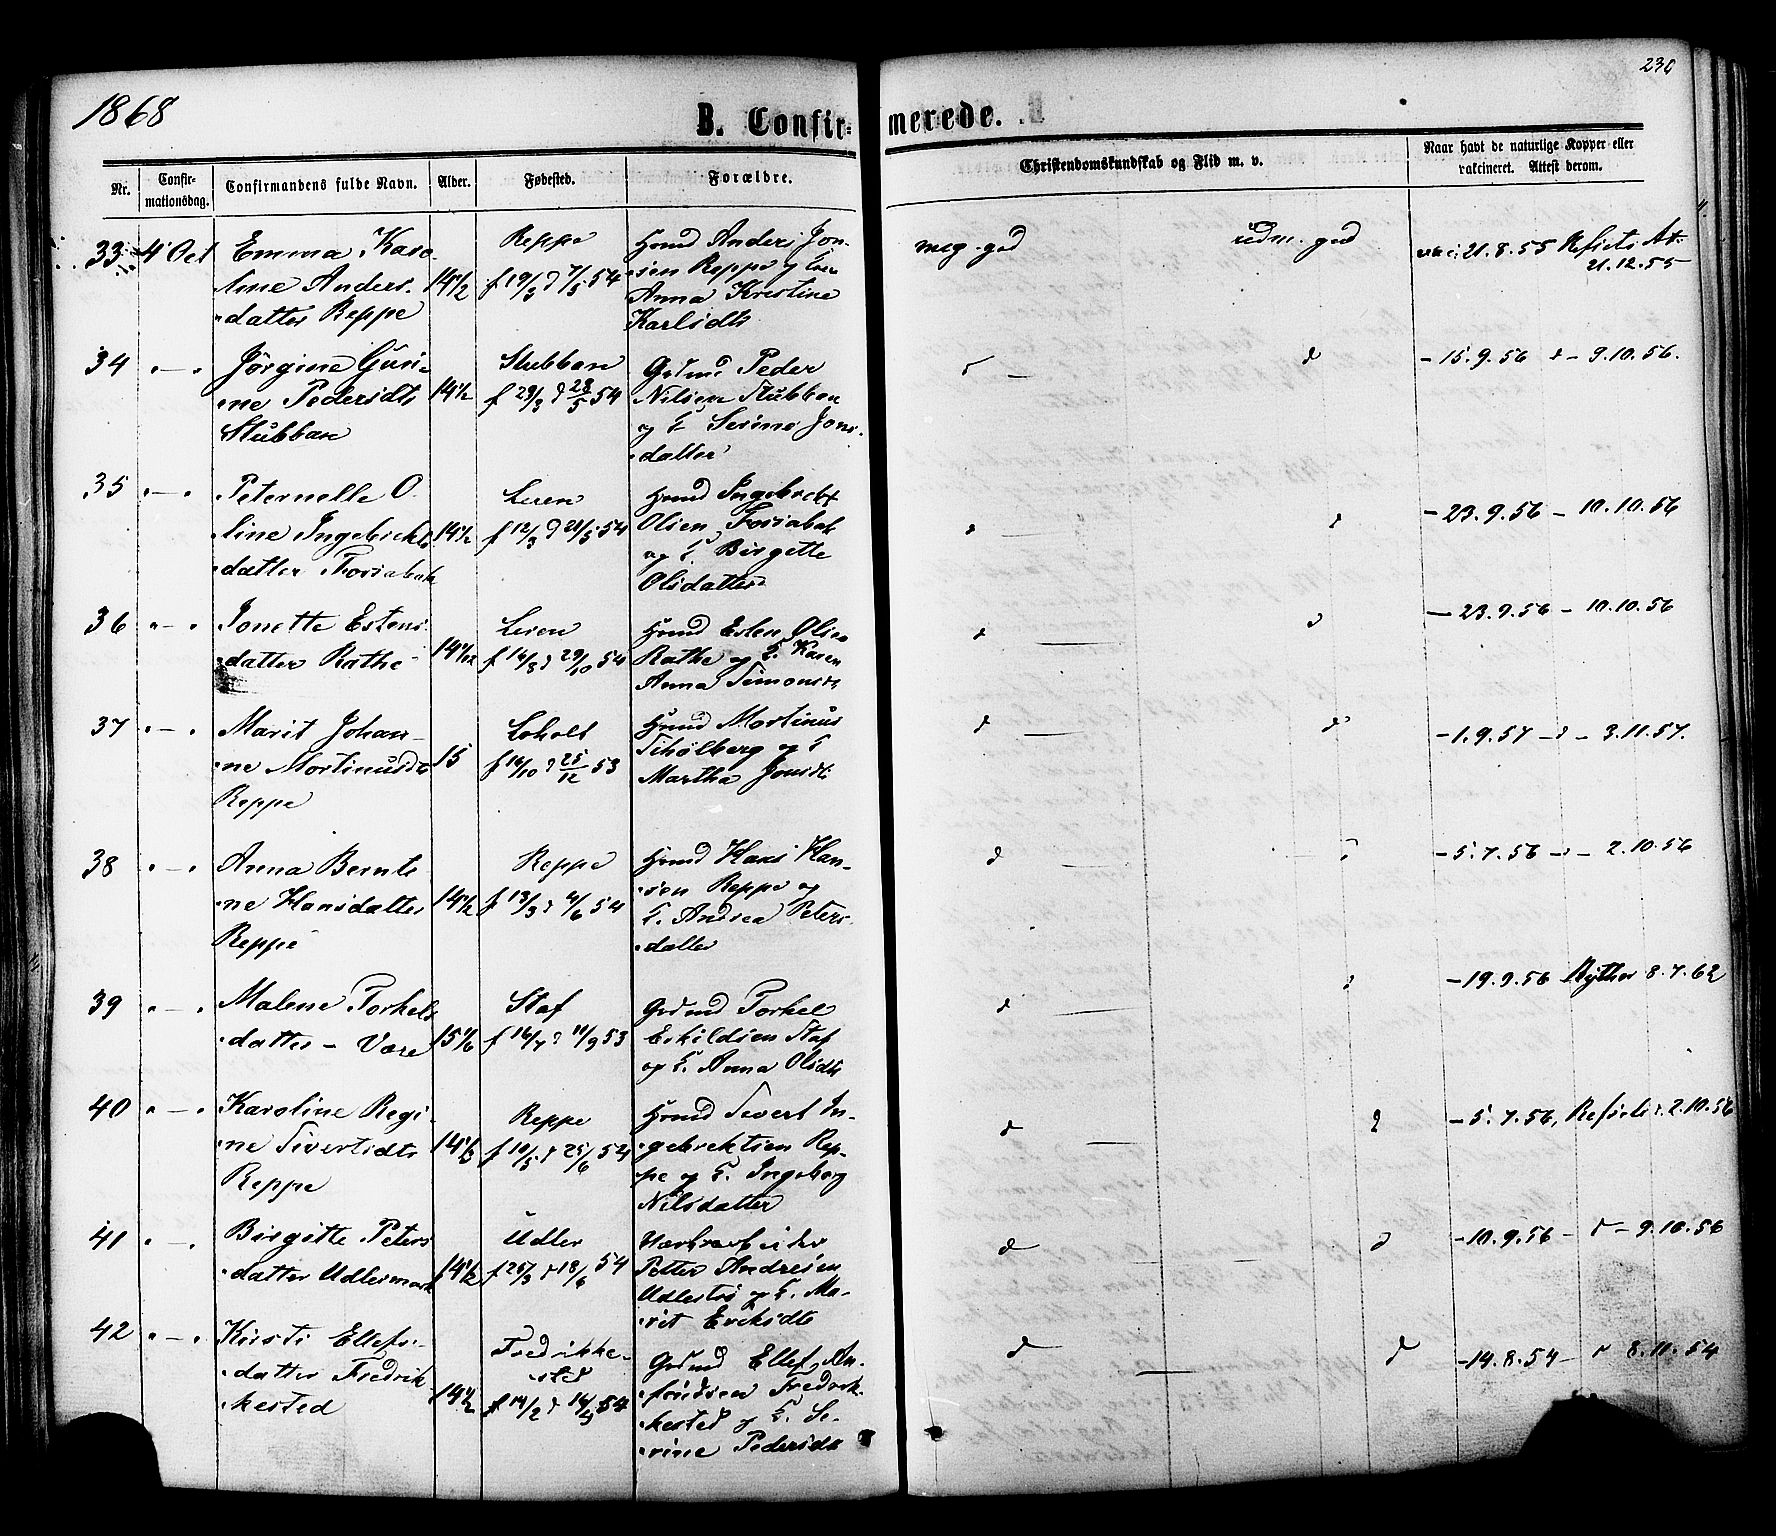 1868
230
B. Confirmerede.
Nr.
Confirmationsdag.
Confirmandens fulde Navn.
Alder.
Fødested.
Forældre.
Christendomskundskab og Flid m. v.
Naar havt de naturlige Kopper eller
vakcineret. Attest derom.
33 4 Oct Emma Karo-
line Anders-
datter Reppe
14 1/2
Reppe
f 19/3 d 7/5 54
Hmd Anders Jon-
sen Reppe og
Anna Kristine
Karlsdtr
meg. god
udm. god
21.8.55
21.12.55
34 " - " Jørgine Guri-
ne Pedersdtr
Stubban
14 1/2
Stubban
f 29/3 d 28/5 54
Gdmd Peder
Nilsen Stubban
og Serine Jons-
datter
d -
d
- 15.9.56 d - 9.10.56.
35 " - " Peternelle O-
line Ingebrikts-
datter
14 1/2
Leren
f 12/3 d 21/5 54
Hmd Ingebrikt
Olsen
og Birgitte
Olsdatter
d
d
- 23.9.56 - 10.10.56
36 " - " Jonette Estens-
datter Rathe
Leren
54
Hmd Esten Olsen
Rathe og Karen
Anna Simonsdtr
d
d
- 23.9.56 - 10.10.56
37 " - " Marit Johan-
ne Mortinusdtr
Reppe
15
Loholt
f 14/10 d 25/12 53
Hmd Mortinus
og
Martha Jonsdtr
d
d
- 1.9.57 - d - 3.11.57.
38 " - " Anna Bernti-
ne Hansdatter
Reppe
14 1/2
Reppe
f 13/3 d 4/6 54
Hmd Hans Han-
sen Reppe og
Andrea Peters-
datter
d
d
- 5.7.56 - d - 2.10.56
39 " - " Malene Torkels-
datter - Være
15 1/6
Staf
f 16/7 d 11/9 53
Gdmd Torkel
Eskildsen Staf
og Anna Olsdtr
d
d
- 19.9.56 8.7.62
40 " - " Karoline Regi-
ne Sivertsdtr
Reppe
14 1/3
Reppe
f 10/5 d 25/6 54
Hmd Sivert In-
gebrektsen Rep-
pe og Ingeborg
Nilsdatter
d
d
- 5.7.56, 2.10.56
41 " - " Birgitte Peters-
datter Udlermark
14 1/2
Udler
f 26/3 d 18/6 54
Petter Andresen
og Ma-
rit Eriksdtr
d
d
- 10.9.56 - d - 9.10.56
42 " - " Kirsti Ellefs-
datter Fredrik-
kested
14 1/2
Fredrikke-
sted
f 14/2 54
Gdmd Ellef
Fredrik-
kested og Se-
rine Pedersdtr
d
d
- 14.8.54 - d 8.11.54